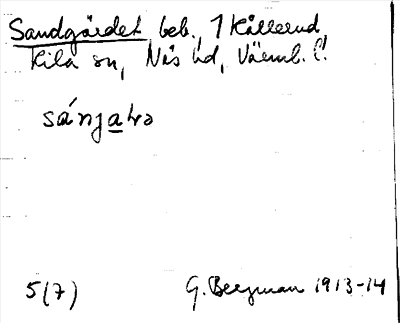 Sandgärdet beb., 1 Kållerud,
Kila sn, Näs hd, Värml. l.
sánjaɫɔ
5(7) G. Bergman 1913-14